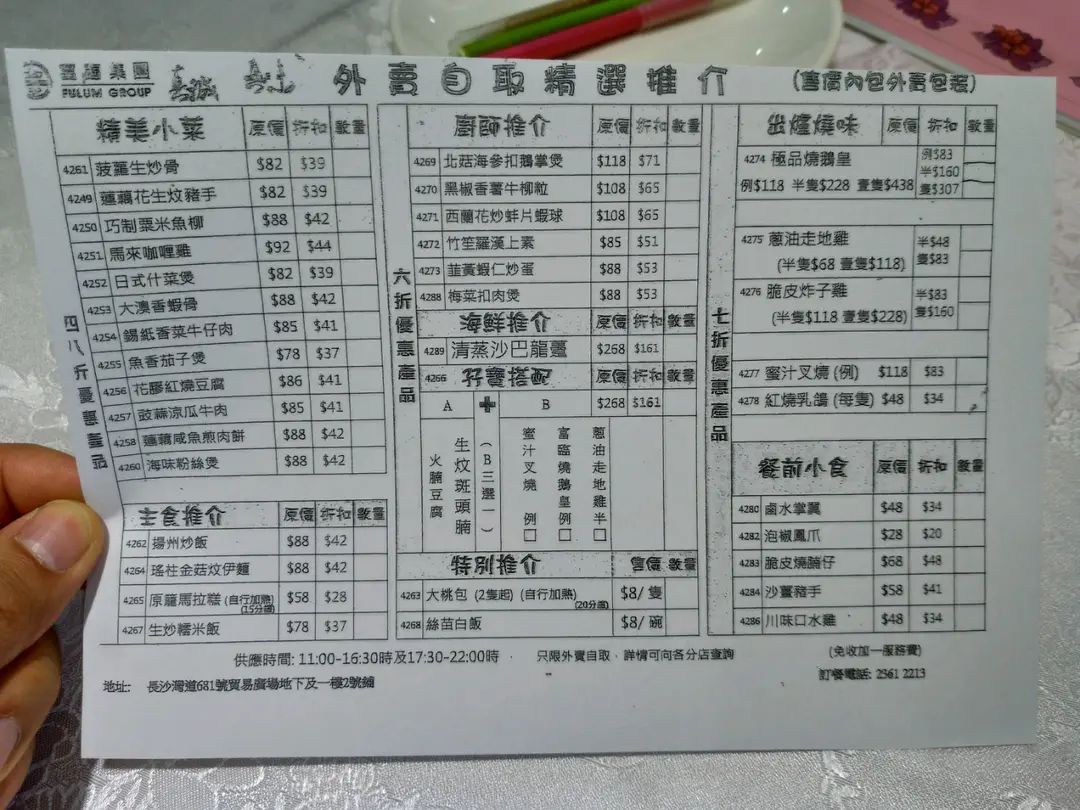 富臨集團
FULUM GROUP
外賣自取精選推介
(售價內包外賣包裝)
精美小菜 原價 折扣 數量
4261 菠蘿生炒骨 $82 $39
4249 蓮藕花生炆豬手 $82 $39
4250 巧制粟米魚柳 $88 $42
4251 馬來咖喱雞 $92 $44
4252 日式什菜煲 $82 $39
4253 大澳香蝦骨 $88 $42
4254 錫紙香菜牛仔肉 $85 $41
4255 魚香茄子煲 $78 $37
4256 花膠紅燒豆腐 $86 $41
4257 豉蒜涼瓜牛肉 $85 $41
4258 蓮藕咸魚煎肉餅 $88 $42
4260 海味粉絲煲 $88 $42
四八折優惠產品
主食推介 原價 折扣 數量
4262 揚州炒飯 $88 $42
4264 瑤柱金菇炆伊麵 $88 $42
4265 原籠馬拉糕 (自行加熱) $58 $28
(15分鐘)
4267 生炒糯米飯 $78 $37
六折優惠產品
廚師推介 原價 折扣 數量
4269 北菇海參扣鵝掌煲 $118 $71
4270 黑椒香薯牛柳粒 $108 $65
4271 西蘭花炒蚌片蝦球 $108 $65
4272 竹笙羅漢上素 $85 $51
4273 韮黃蝦仁炒蛋 $88 $53
4288 梅菜扣肉煲 $88 $53
海鮮推介 原價 折扣 數量
4289 清蒸沙巴龍躉 $268 $161
4266 孖寶搭配 原價 折扣 數量
A + B $268 $161
火腩豆腐
生炆斑頭腩
(B三選一)
蜜汁叉燒 例□
富臨燒鵝皇 例□
蔥油走地雞 半□
特別推介 售價 數量
4263 大桃包 (2隻起) (自行加熱) $8/ 隻
(20分鐘)
4268 絲苗白飯 $8/ 碗
七折優惠產品
出爐燒味 原價 折扣 數量
4274 極品燒鵝皇 例$83
半$160
例$118 半隻$228 壹隻$438 隻$307
4275 蔥油走地雞 半$48
(半隻$68 壹隻$118) 隻$83
4276 脆皮炸子雞 半$83
(半隻$118 壹隻$228) 隻$160
4277 蜜汁叉燒 (例) $118 $83
4278 紅燒乳鴿 (每隻) $48 $34
餐前小食 原價 折扣 數量
4280 鹵水掌翼 $48 $34
4282 泡椒鳳爪 $28 $20
4283 脆皮燒腩仔 $68 $48
4284 沙薑豬手 $58 $41
4286 川味口水雞 $48 $34
供應時間: 11:00-16:30時及17:30-22:00時 只限外賣自取、詳情可向各分店查詢 (免收加一服務費)
地址: 長沙灣道681號貿易廣場地下及一樓2號鋪 訂餐電話: 2361 2213